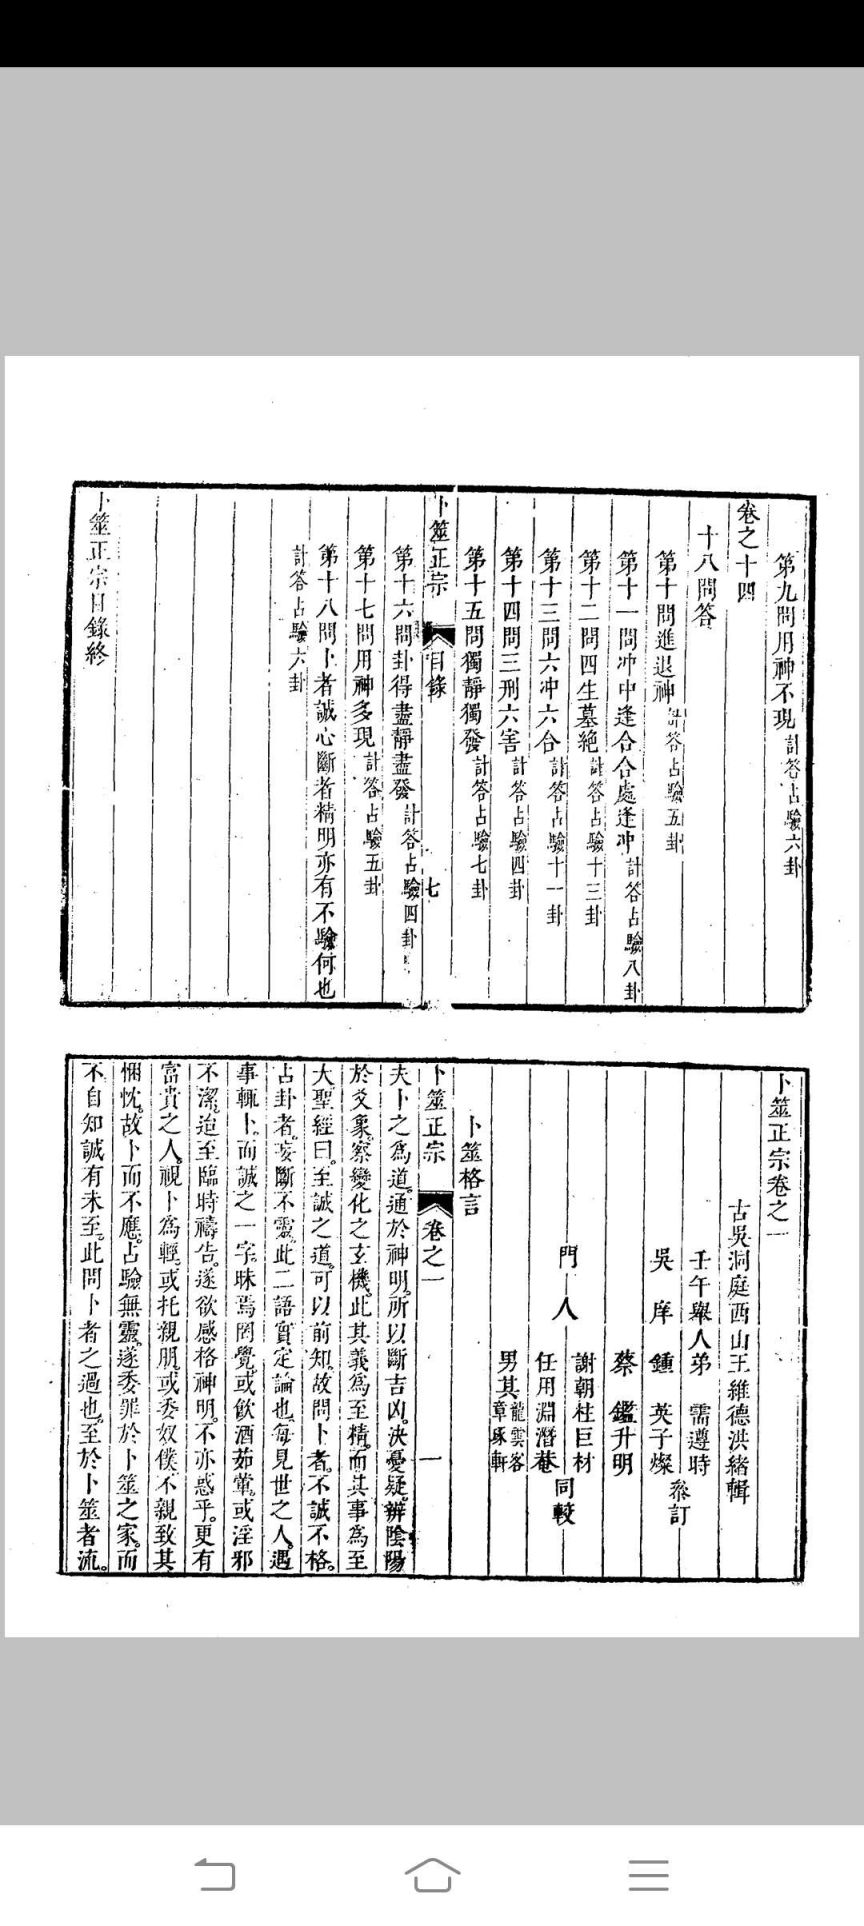 第九問用神不現計答占驗六卦
卷之十四
十八問答
第十問進退神計答占驗五卦
第十一問冲中逢合合處逢冲計答占驗八卦
第十二問四生墓絕計答占驗十三卦
第十三問六冲六合計答占驗十一卦
第十四問三刑六害計答占驗四卦
第十五問獨靜獨發計答占驗七卦
卜筮正宗 目錄 七
第十六問卦得盡靜盡發計答占驗四卦
第十七問用神多現計答占驗五卦
第十八問卜者誠心斷者精明亦有不驗何也
計答占驗六卦
卜筮正宗目錄終
卜筮正宗卷之一
古吳洞庭西山王維德洪緒輯
壬午舉人弟 需遵時
吳庠 鍾英子燦 叅訂
蔡鑑升明
門人
謝朝柱巨材
任用淵潛菴 同較
男其龍雲客章琢軒
卜筮格言
卜筮正宗 卷之一 一
夫卜之為道。通於神明。所以斷吉凶。決憂疑。辨陰陽
於爻象。察變化之玄機。此其義為至精。而其事為至
大。聖經曰。至誠之道。可以前知。故問卜者。不誠不格。
占卦者。妄斷不靈。此二語實定論也。每見世之人。遇
事輒卜。而誠之一字。昧焉罔覺。或飲酒茹葷。或淫邪
不潔。迨至臨時禱告。遂欲感格神明。不亦惑乎。更有
富貴之人。視卜為輕。或托親朋。或委奴僕。不親致其
悃忱。故卜而不應。占驗無靈。遂委罪於卜筮之家。而
不自知誠有未至。此問卜者之過也。至於卜筮者流。